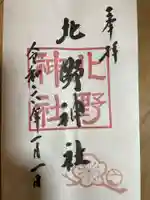 奉拝
北野神社
北野
神社
令和二年一月一日